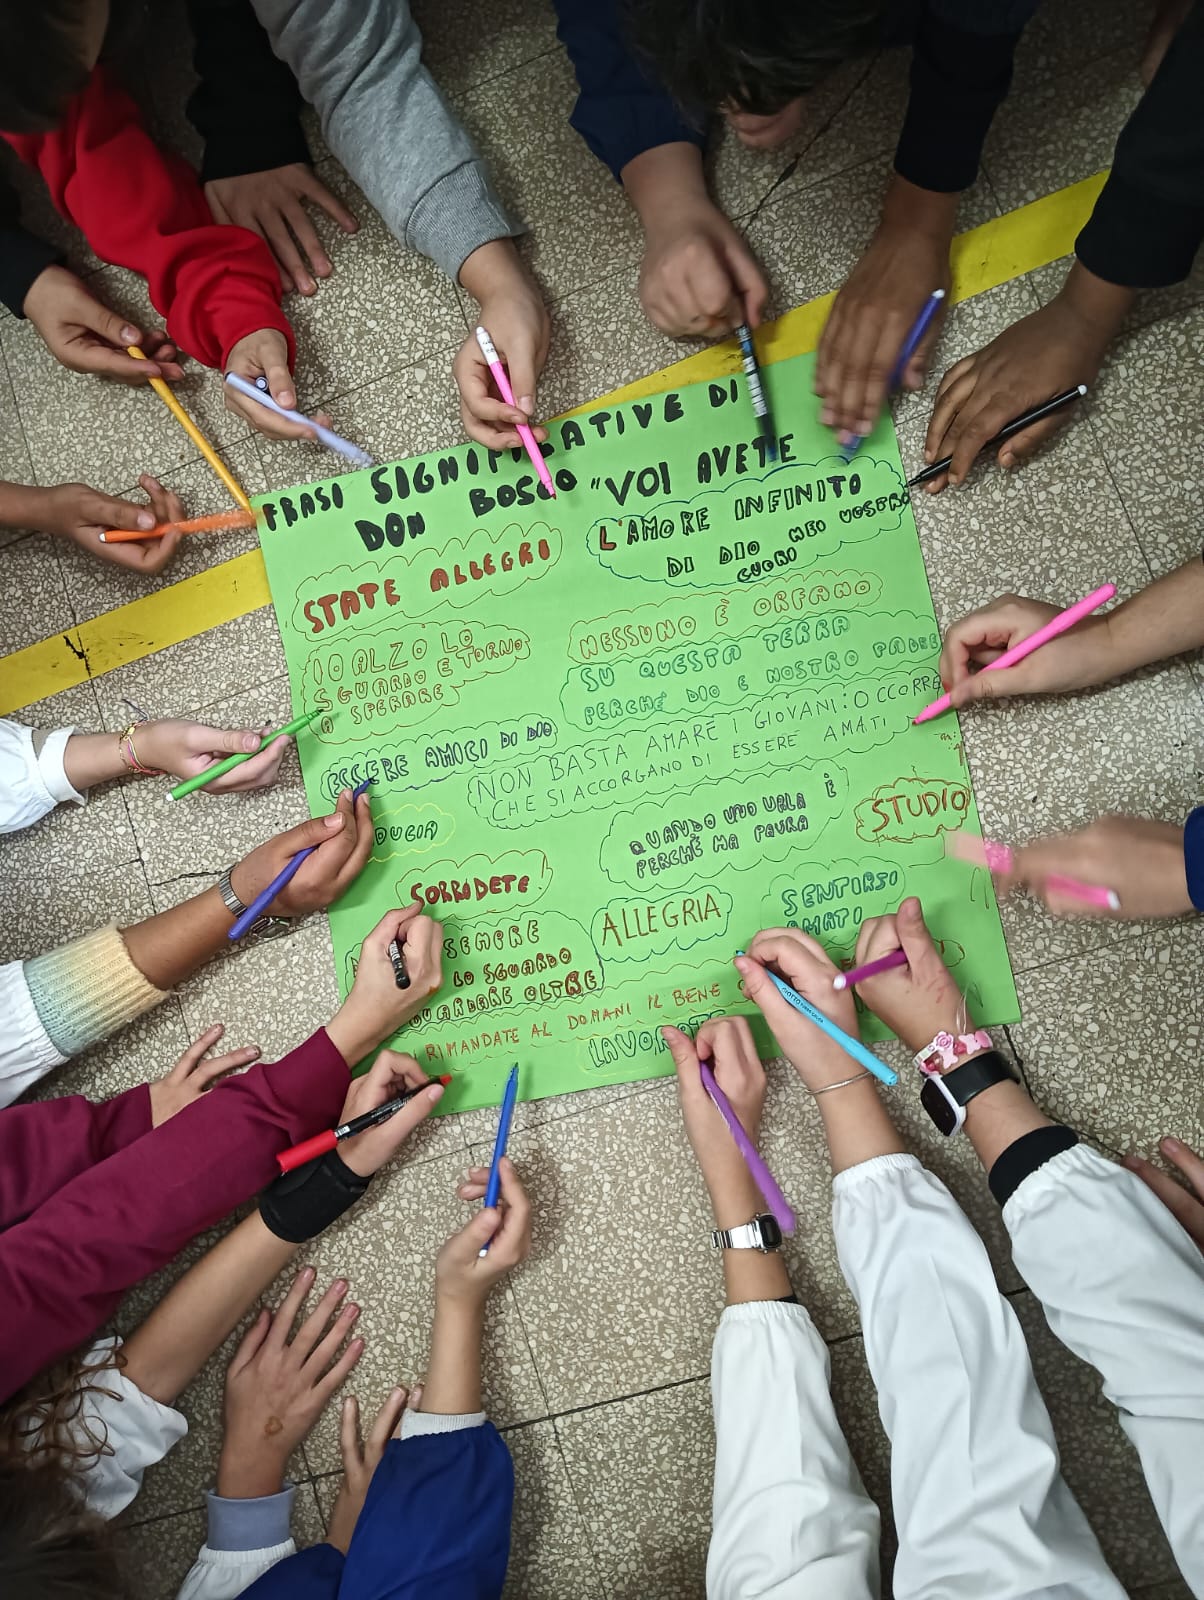 FRASI SIGNIFICATIVE DI
DON BOSCO
STATE ALLEGRI
IO ALZO LO
SGUARDO E TORNO
A SPERARE
ESSERE AMICI DI DIO
DUCIA
SORRIDETE!
SEMPRE
LO SGUARDO
GUARDARE OLTRE
RIMANDATE AL DOMANI IL BENE
LAVORATE
"VOI AVETE
L'AMORE INFINITO
DI DIO NEI VOSTRO
CUORI
NESSUNO È ORFANO
SU QUESTA TERRA
PERCHÉ DIO E NOSTRO PADRE
NON BASTA AMARE I GIOVANI: OCCORRE
CHE SI ACCORGANO DI ESSERE AMATI
QUANDO UNO URLA È
PERCHÈ HA PAURA
STUDIO
ALLEGRIA
SENTIRSI
AMATI